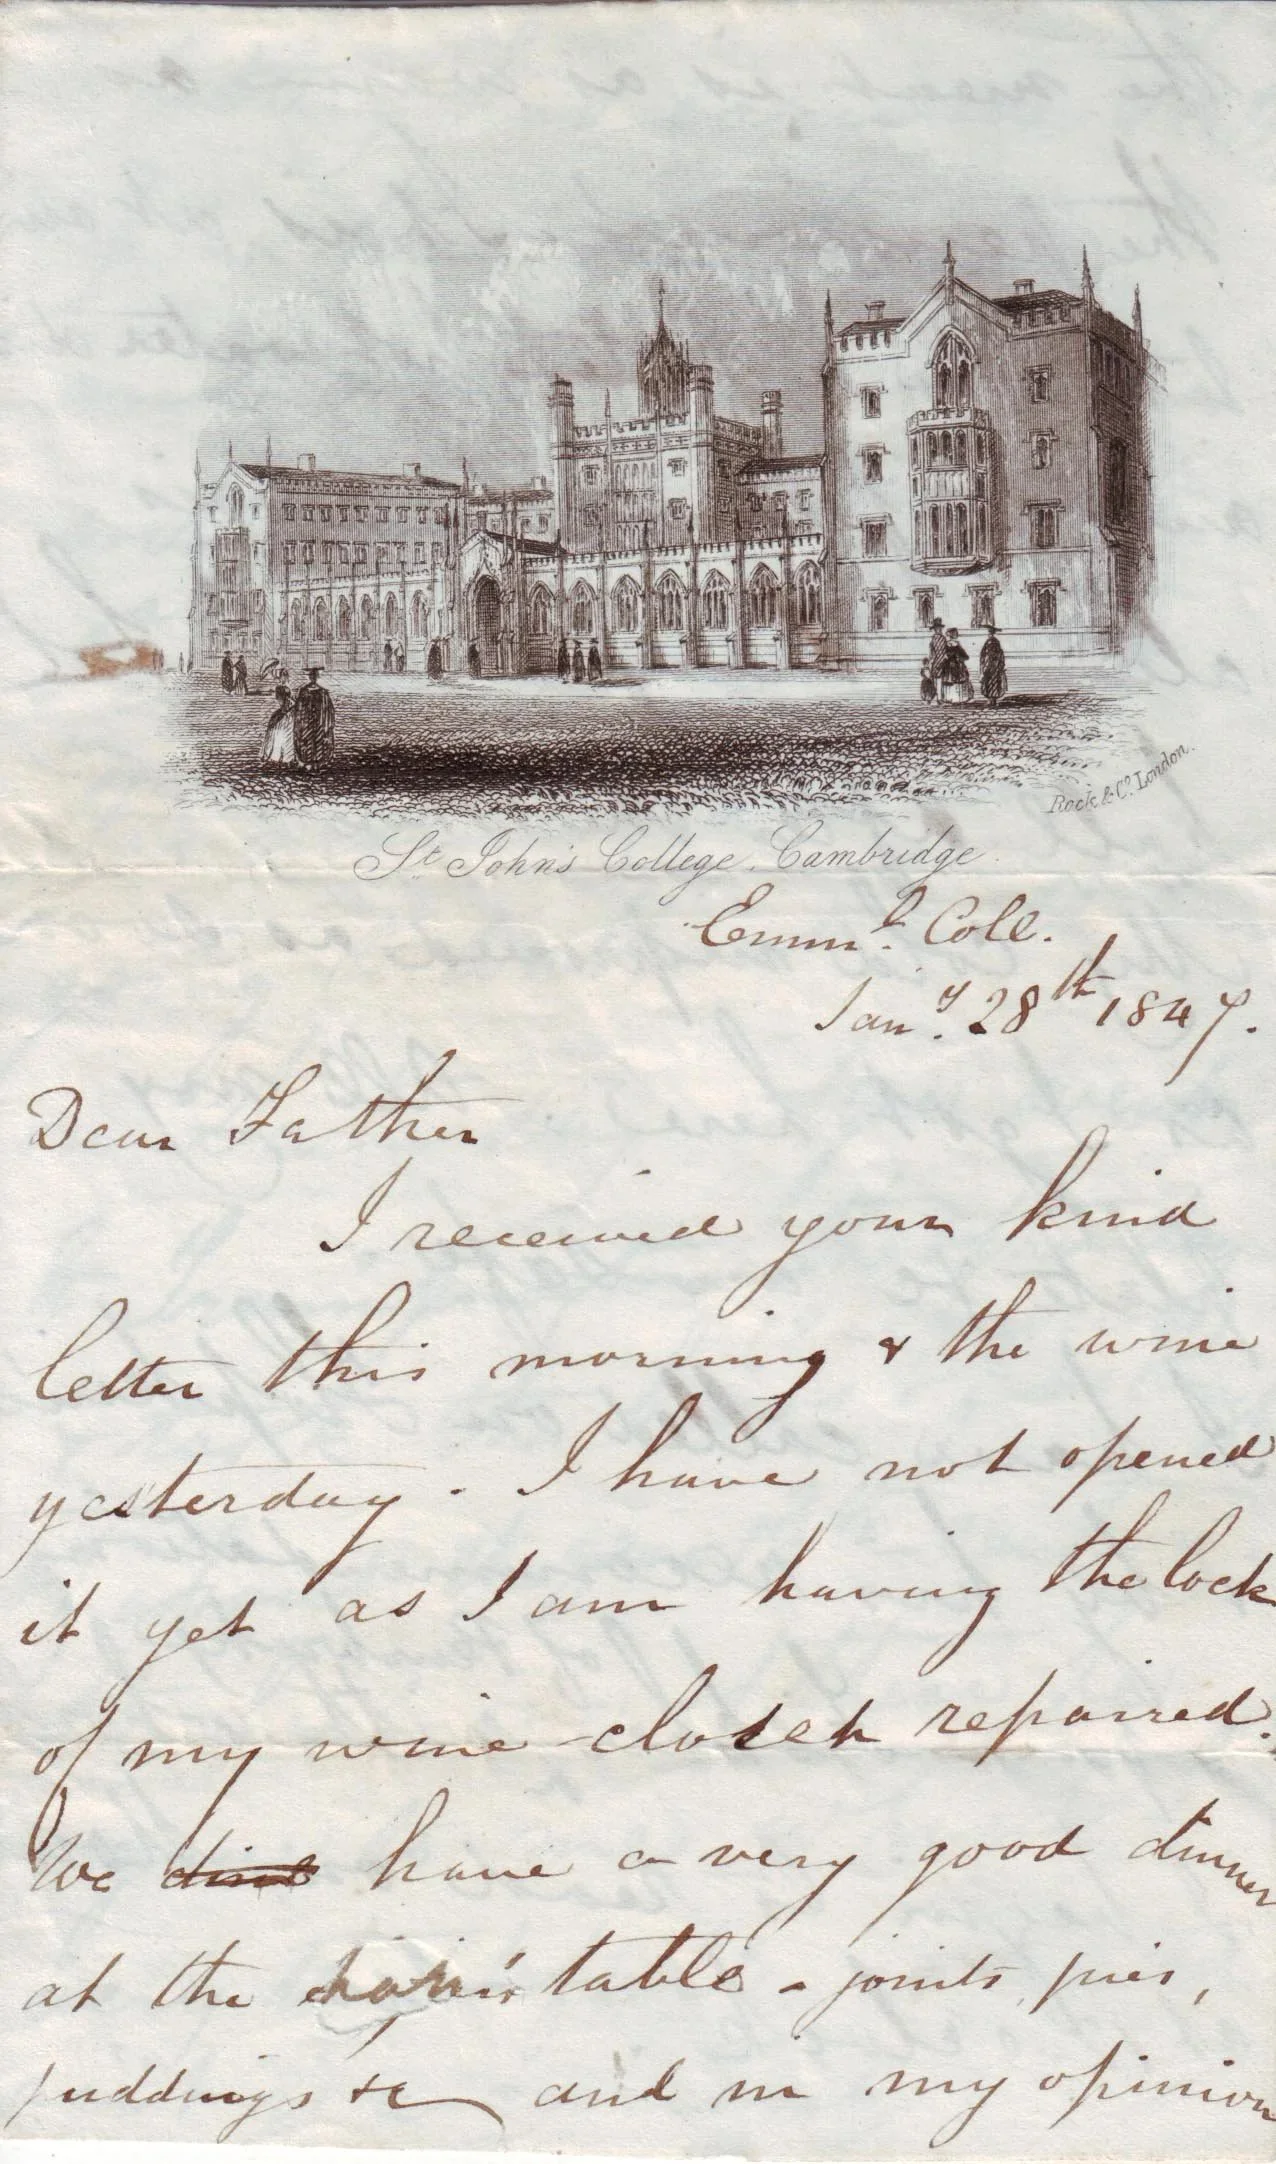 Rock & Co. London.
St. John's College, Cambridge.
Emml. Coll.
Jany. 28th 1847.
Dear Father
I received your kind
letter this morning & the wine
yesterday. I have not opened
it yet as I am having the lock
of my wine closet repaired.
We have a very good dinner
at the table - joints, pies,
puddings &c and in my opinion